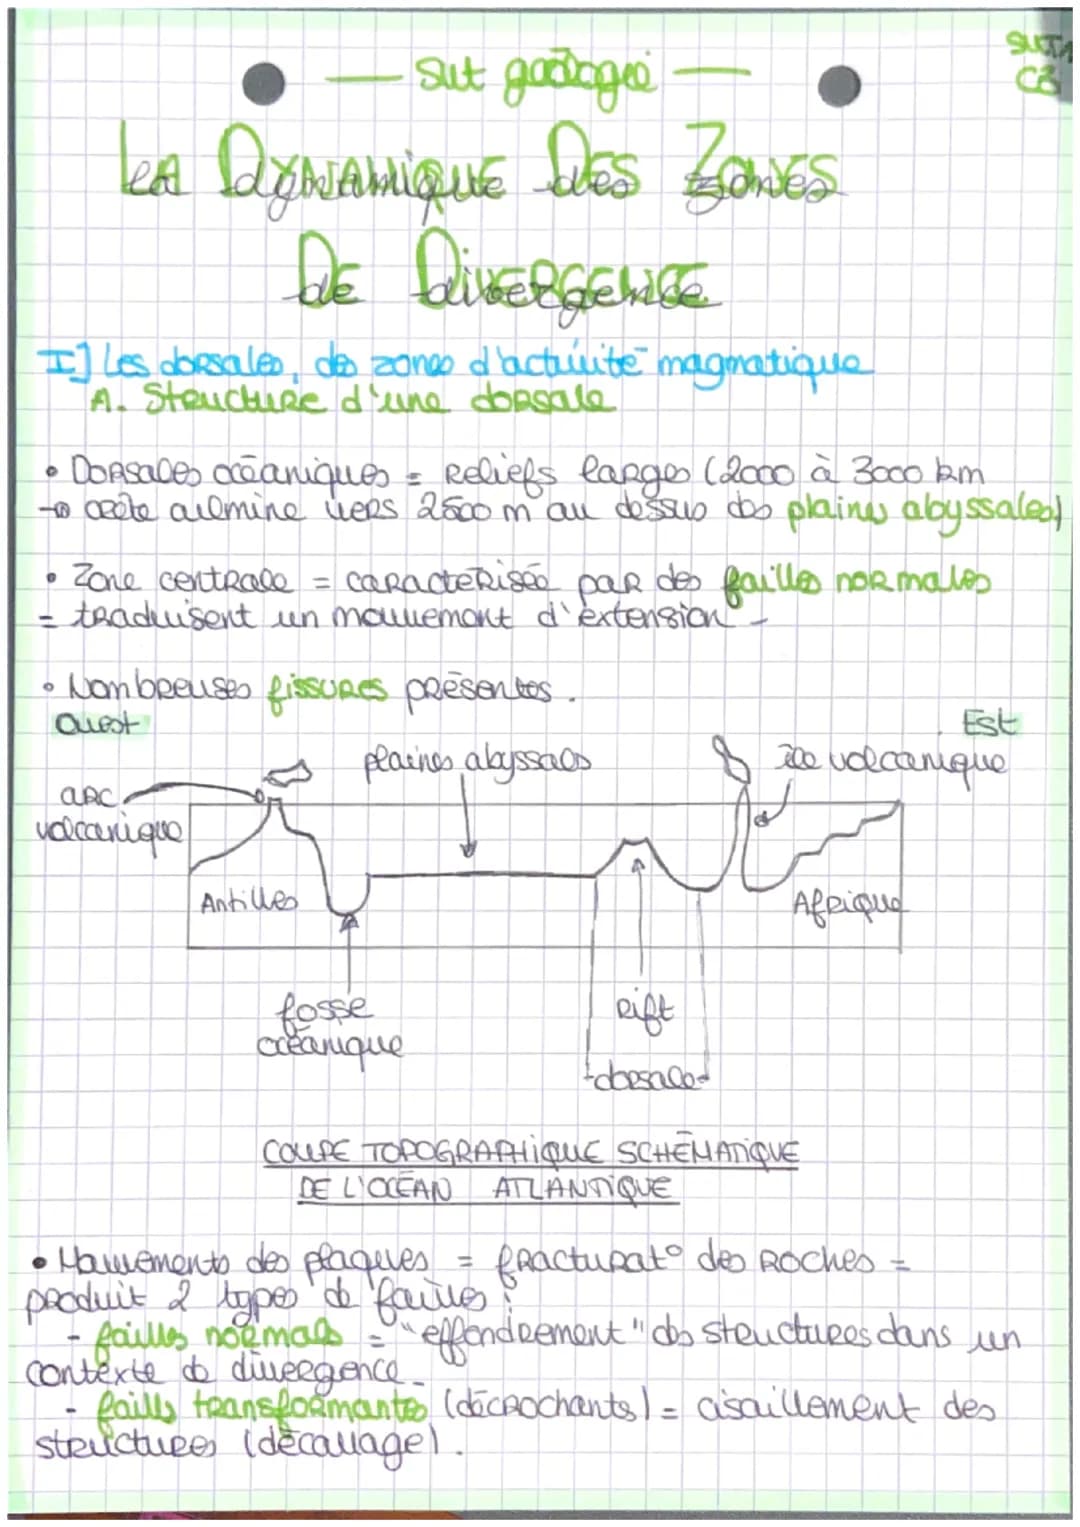 — SVT géologie —
SVT
C3
La Dynamique Des Zones
De Divergence
I] Les dorsales, des zones d'activité magmatique
A. Structure d'une dorsale
• Dorsales océaniques = Reliefs larges (2000 à 3000 km
→ crête culmine vers 2500 m au dessus des plaines abyssales)
• Zone centrale = caractérisée par des failles normales
= traduisent un mouvement d'extension -
• Nombreuses fissures présentes.
Ouest
Est
plaines abyssales
île volcanique
arc
volcanique
Antilles
Afrique
fosse
océanique
Rift
dorsale
COUPE TOPOGRAPHIQUE SCHÉMATIQUE
DE L'OCÉAN ATLANTIQUE
• Mouvements des plaques = fracturat° des Roches =
produit 2 types de failles :
- failles normales = "effondrement" des structures dans un
contexte de divergence -
- failles transformantes (décrochants) = cisaillement des
structures (décallage).